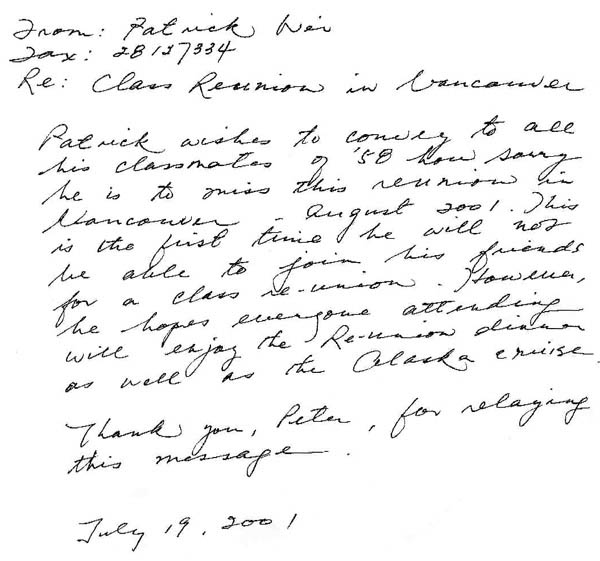 From: Patrick Wei
Fax: 28127334
Re: Class Reunion in Vancouver
Patrick wishes to convey to all
his classmates of '58 how sorry
he is to miss this reunion in
Vancouver - August 2001. This
is the first time he will not
be able to join his friends
for a class re-union. However,
he hopes everyone attending
will enjoy the Re-union dinner
as well as the Alaska cruise.
Thank you, Peter, for relaying
this message.
July 19, 2001